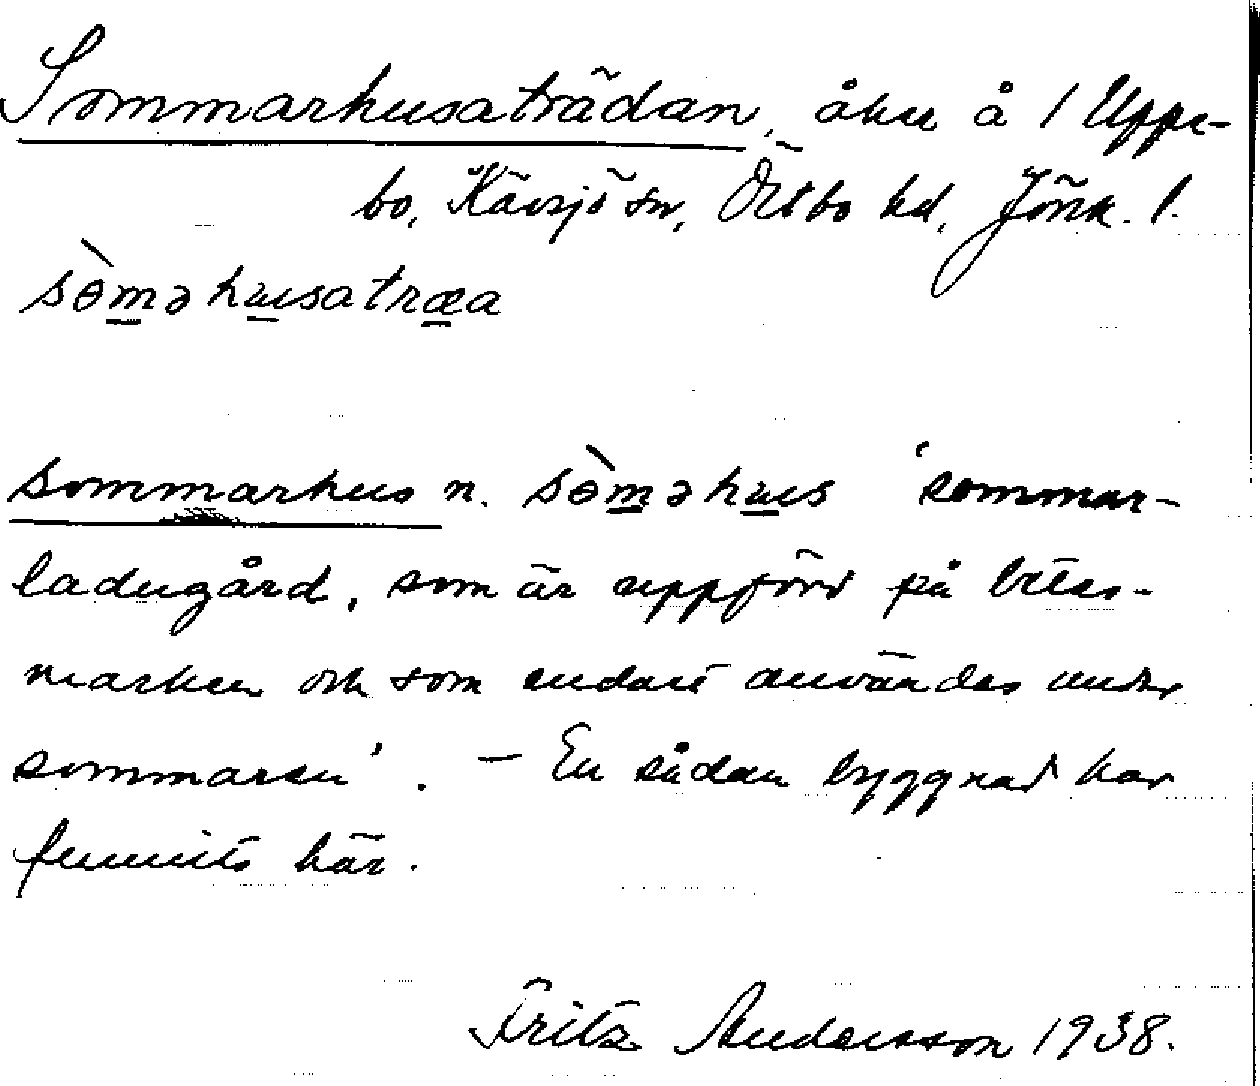 Sommarhusaträdan, åker å 1 Uppe-
bo, Kävsjö sn, Östbo hd, Jönk. l.
sòməhusatræa
sommarhus n. sòməhus 'sommar-
ladugård, som är uppförd på betes-
marken och som endast användes under
sommaren'. – En sådan byggnad har
funnits här.
Fritz Andersson 1938.